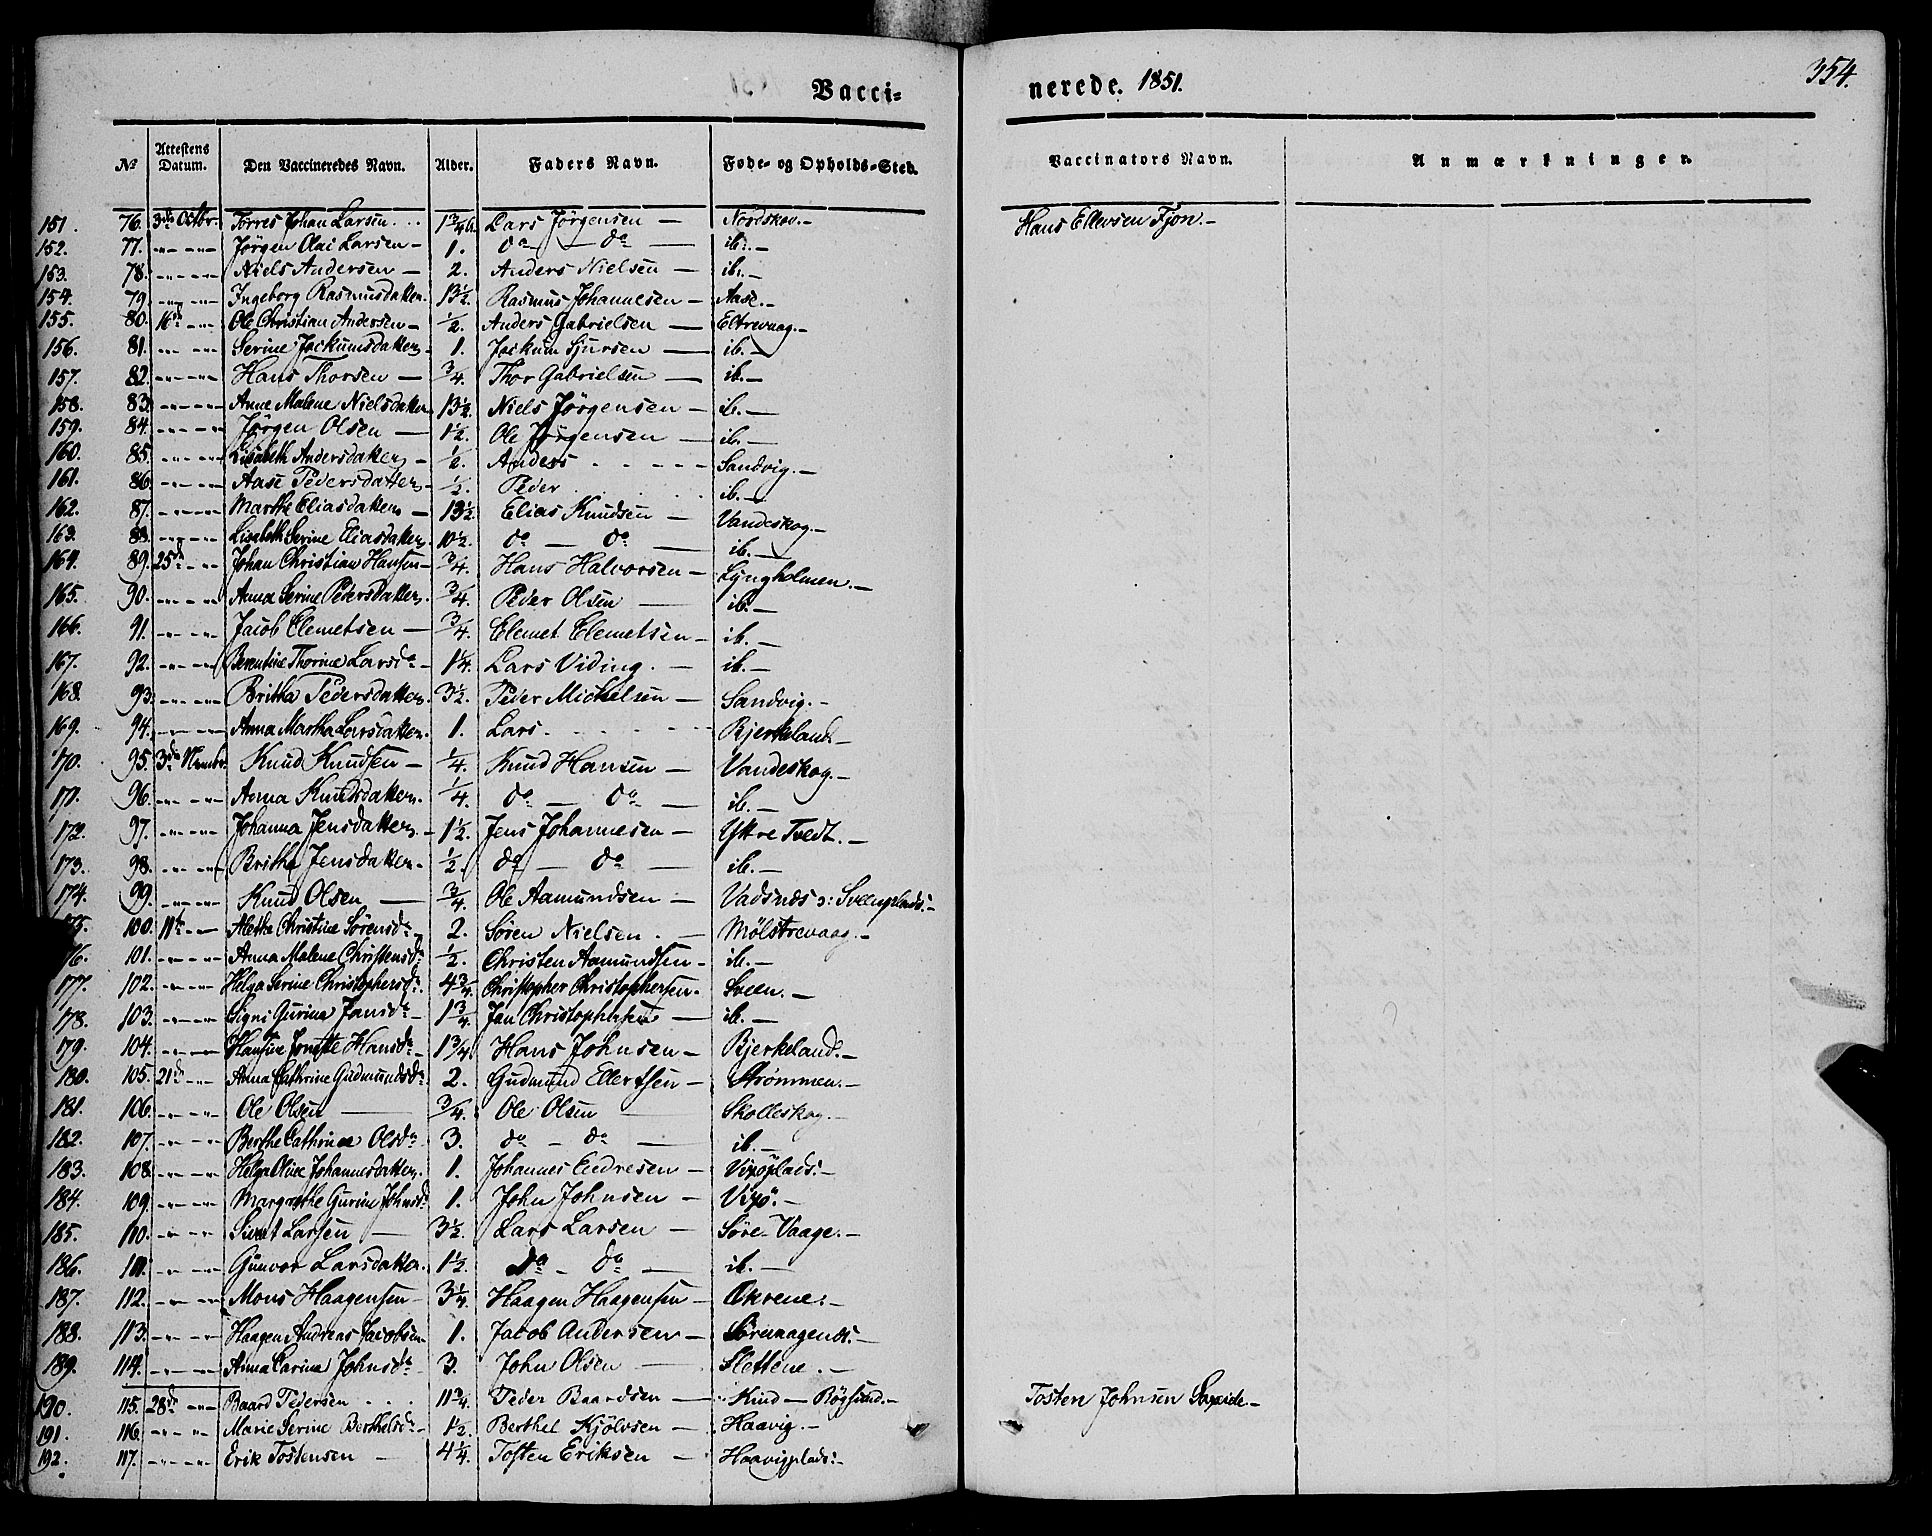 354.
Vacci- nerede. 1851.
№ Attestens Datum. Den Vaccineredes Navn. Alder. Faders Navn. Føde- og Opholds-Sted. Vaccinators Navn. Anmærkninger.
151. 76. 3die Octbr. Torres Johan Larsen. 1 Lars Jörgensen — Nordskov.— Hans Ellevsen Fjon.—
152. 77. -"-"- Jørgen Olai Larsen — 1. do — do — ib.—
153. 78. -"-"- Niels Andersen — 2. Anders Nielsen — ib.—
154. 79. -"-"- Ingeborg Rasmusdatter. 13½. Rasmus Johannesen — Aase.—
155. 80. 16de -"- Ole Christian Andersen — ½. Anders Gabrielsen — Eltrevaag.—
156. 81. -"-"- Serine Jackumsdatter — 1. Jackum Sjursen — ib.—
157. 82. -"-"- Hans Thorsen — ¾. Thor Gabrielsen — ib.—
158. 83. -"-"- Anne Malene Nielsdatter 13½. Niels Jörgensen — ib.—
159. 84. -"-"- Jørgen Olsen — 1½. Ole Jörgensen — ib.—
160. 85. -"-"- Lisabeth Andersdatter — ½. Anders . . - - - Sandvig.—
161. 86. -"-"- Aase Pedersdatter — ½. Peder . . . . ib.—
162. 87. -"-"- Marthe Eliasdatter — 13½. Elias Knudsen — Vandeskog.—
163. 88. -"-"- Lisabeth Serine Eliasdatter. 10½. do — do — ib.—
164. 89. 25de -"- Johan Christian Hansen — ¾. Hans Halvorsen — Lyngholmen.—
165. 90. -"-"- Anna Serine Pedersdatter. ¾. Peder Olsen — ib.—
166. 91. -"-"- Jacob Clemetsen — ¾. Clemet Clemetsen — ib.—
167. 92. -"-"- Berentine Thorine Larsdr — 1¼. Lars Viding. — ib.—
168. 93. -"-"- Britha Pedersdatter. 3½. Peder Michelsen — Sandvig.—
169. 94. -"-"- Anna Martha Larsdatter. 1. Lars . . - - Bjerkeland.—
170. 95. 3die Novembr. Knud Knudsen — ¼. Knud Hansen — Vandeskog.—
171. 96. -"-"- Anna Knudsdatter. ¼. do — do — ib.—
172. 97. -"-"- Johanna Jensdatter. — 1½. Jens Johannesen — Yttre Tvedt.—
173. 98. -"-"- Britha Jensdatter. ½. do — do — ib.—
174. 99. -"-"- Knud Olsen — ¾. Ole Aamundsen — Vadsnæs ɔ: Sveenplads:—
175. 100. 11te -"- Alethe Christine Sörensdr 2. Sören Nielsen. — Mölstrevaag.—
176. 101. -"-"- Anna Malene Christensdr ½. Christen Aamundsen — ib.—
177. 102. -"-"- Helga Serine Christophersdr. 4¾. Christopher Christophersen. Sveen.—
178. 103. -"-"- Signi Gurina Jansdr — 1¾. Jan Christophersen — ib.—
179. 104. -"-"- Hansine Hansdr 1¾. Hans Johnsen — Bjerkeland.—
180. 105. 21de -"- Anna Cathrine Gudmundsdr. 2. Gudmund Ellertsen — Strømmen.—
181. 106. -"-"- Ole Olsen — ¾. Ole Olsen Skolleskog.—
182. 107. -"-"- Berthe Cathrine Olsdr 3. do — do — ib.—
183. 108. -"-"- Helga Oline Johannesdatter. 1. Johannes Endresen — Vixöplads:—
184. 109. -"-"- Margrethe Gurine Johnsdr 1. John Johnsen — Vixö.—
185. 110. -"-"- Sivert Larsen — 3½. Lars Larsen — Søre Vaage.—
186. 111. -"-"- Gunvor Larsdatter. 1½. do — do — ib.—
187. 112. -"-"- Mons Haagensen — 3¼. Haagen Haagensen — Økrene:—
188. 113. -"-"- Haagen Andreas Jacobsen — 1. Jacob Andersen — Sörevaagends:—
189. 114. -"-"- Anna Carina Johnsdr — 3. John Olsen — Slettene.—
190. 115. 28de -"- Baard Pedersen . . . 11¾. Peder Baardsen — Kind — Bögsund.— Tosten Johnsen
191. 116. -"-"- Marie Serine Berthelsdr — 1½. Berthel Kjölvsen — Haavig.—
192. 117. -"-"- Erik Tostensen — 4¼. Tosten Eriksen — Haavigplads:—